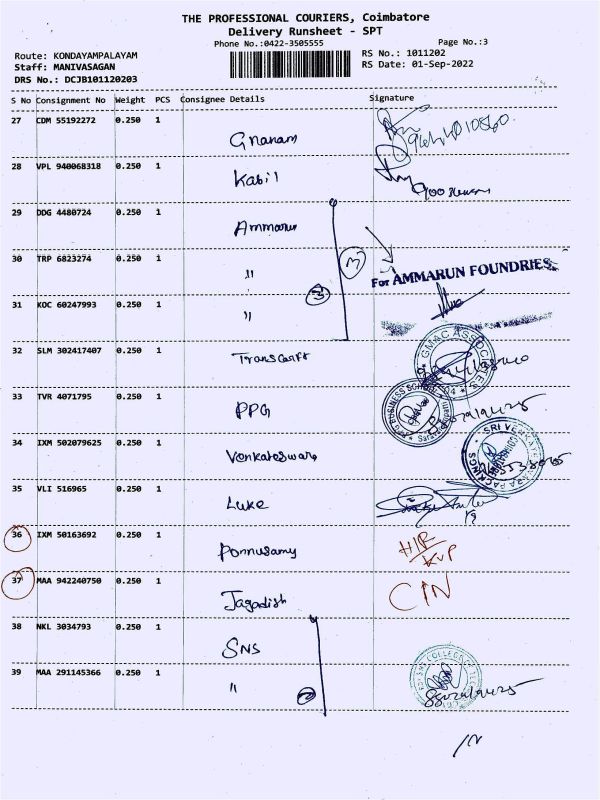 THE PROFESSIONAL COURIERS, Coimbatore
Delivery Runsheet - SPT
Phone No.:0422-3505555
Page No.:3
Route: KONDAYAMPALAYAM
RS No.: 1011202
Staff: MANIVASAGAN
RS Date: 01-Sep-2022
DRS No.: DCJB101120203
S No Consignment No Weight PCS Consignee Details Signature
27 CDM 55192272 0.250 1 Gnanam
28 VPL 940068318 0.250 1 Kabil
29 DDG 4480724 0.250 1 Ammarun
30 TRP 6823274 0.250 1 " 3
For AMMARUN FOUNDRIES
31 KOC 60247993 0.250 1 " 3
32 SLM 302417407 0.250 1
GMAC ASSOCIATES
33 TVR 4071795 0.250 1 PPG
BUSINESS SCHOOL
34 IXM 502079625 0.250 1 Venkateswara
SRI VENKATESWARA PACKINGS
35 VLI 516965 0.250 1 Luke
36 IXM 50163692 0.250 1 Ponnusamy
37 MAA 942240750 0.250 1 Jagadish
38 NKL 3034793 0.250 1 SNS
39 MAA 291145366 0.250 1 " 2
SNS COLLEGE OF